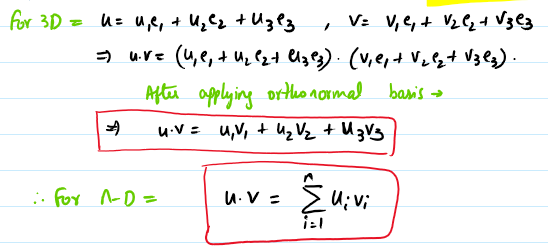 for 3D = u = u₁e₁ + u₂e₂ + u₃e₃ , v = v₁e₁ + v₂e₂ + v₃e₃
⇒ u.v = (u₁e₁ + u₂e₂ + u₃e₃) . (v₁e₁ + v₂e₂ + v₃e₃) .
After applying orthonormal basis →
⇒ u.v = u₁v₁ + u₂v₂ + u₃v₃
∴ for n-D = u.v = ∑ᵢ₌₁ⁿ uᵢvᵢ